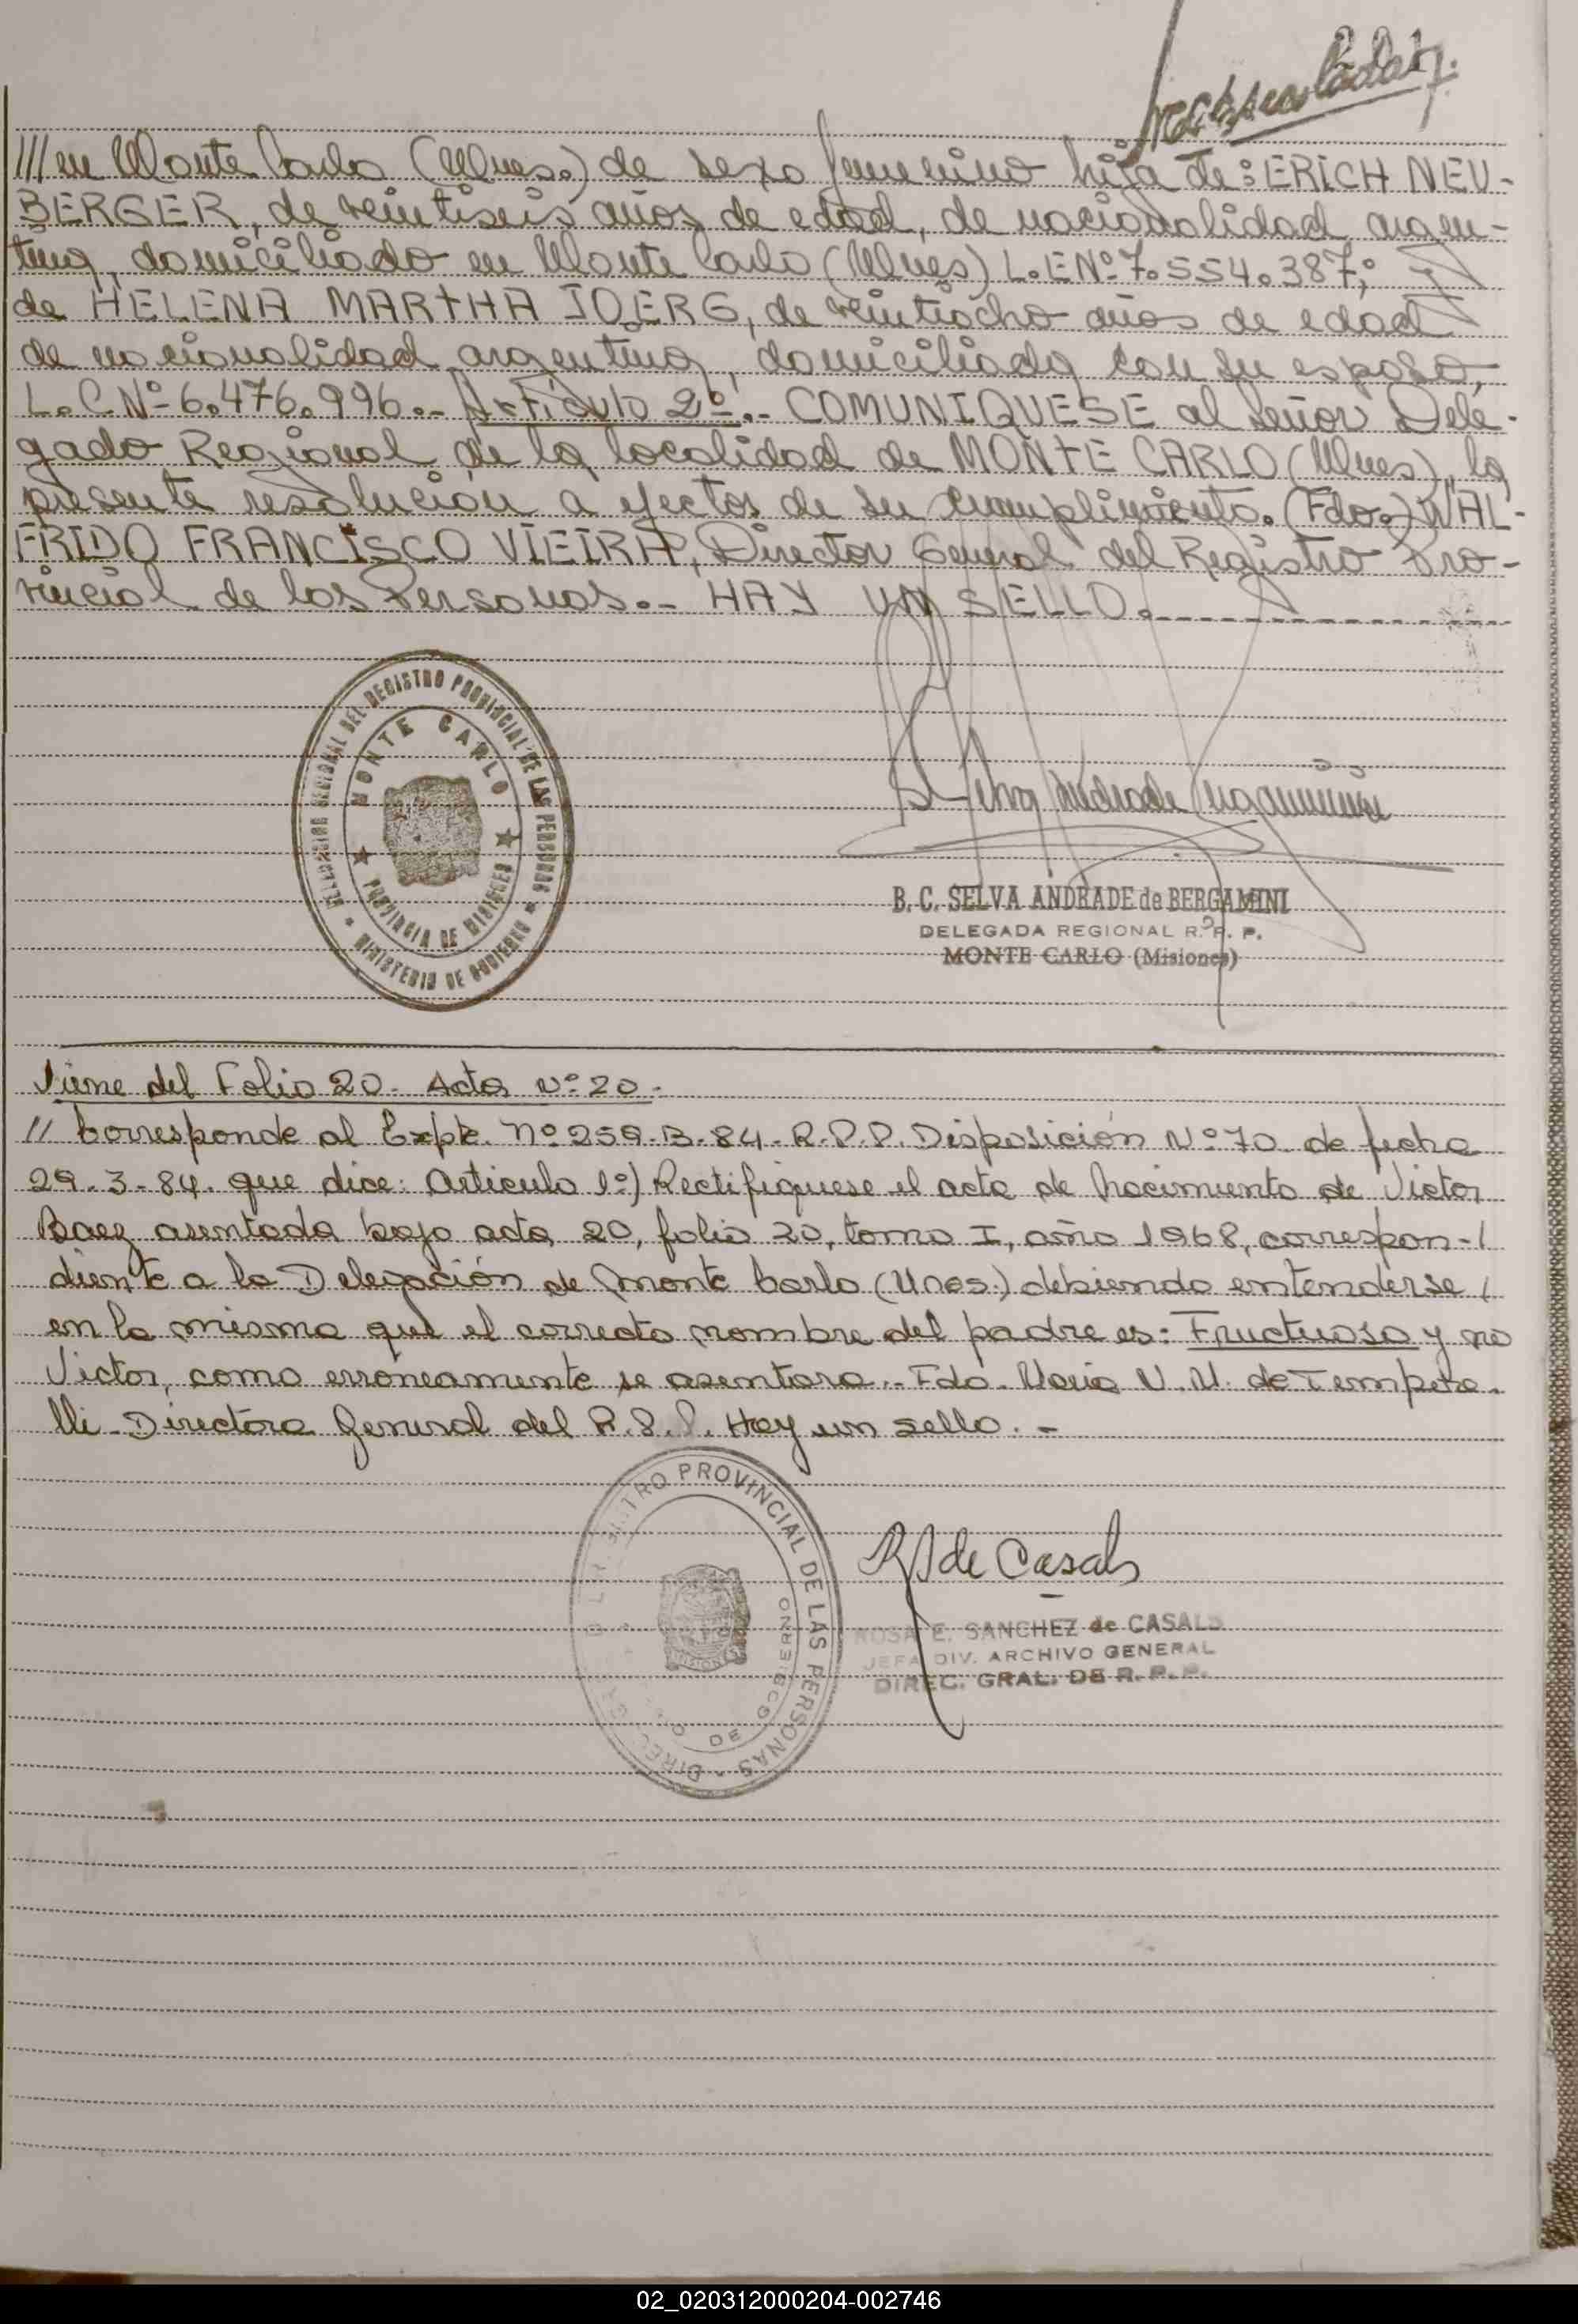 /// en Monte Carlo (Mnes.) de sexo femenino hija de: ERICH NEU-
BERGER, de veintiseis años de edad, de nacionalidad argen-
tina, domiciliado en Monte Carlo (Mnes) L.E Nº 7.554.387; y
de HELENA MARTHA JOERG, de veintiocho años de edad
de nacionalidad argentina, domiciliada con su esposo,
L.C Nº 6.476.996.- Artículo 2º.- COMUNIQUESE al Señor Dele-
gado Regional de la localidad de MONTE CARLO (Mnes), la
presente resolución a efectos de su cumplimiento. (Fdo.) WAL-
FRIDO FRANCISCO VIEIRA, Director General del Registro Pro-
vincial de las Personas.- HAY UN SELLO.
DELEGACION REGIONAL DEL REGISTRO PROVINCIAL DE LAS PERSONAS
MONTE CARLO
PROVINCIA DE MISIONES
MINISTERIO DE GOBIERNO
B. C. SELVA ANDRADE de BERGAMINI
DELEGADA REGIONAL R. P. P.
MONTE CARLO (Misiones)
Viene del Folio 20 - Acta Nº 20 -
// Corresponde al Expte. Nº 259-B-84-R.P.P. Disposición Nº 70 de fecha
29-3-84. que dice: Articulo 1º) Rectifiquese el acta de Nacimiento de Victor
Baez asentada bajo acta 20, folio 20, tomo I, año 1968, correspon-/
diente a la Delegación de Monte Carlo (Mnes.) debiendo entenderse /
en la misma que el correcto nombre del padre es: Fructuoso y no
Victor, como erróneamente se asentara.- Fdo. Maria N. M. de Tempera-
lli - Directora General del R.P.P. Hay un sello. -
PROVINCIAL DE LAS PERSONAS
DE GOBIERNO
R S de Casals
ROSA E. SANCHEZ de CASALS
JEFA DIV. ARCHIVO GENERAL
DIREC. GRAL. DE R. P. P.
02_020312000204-002746